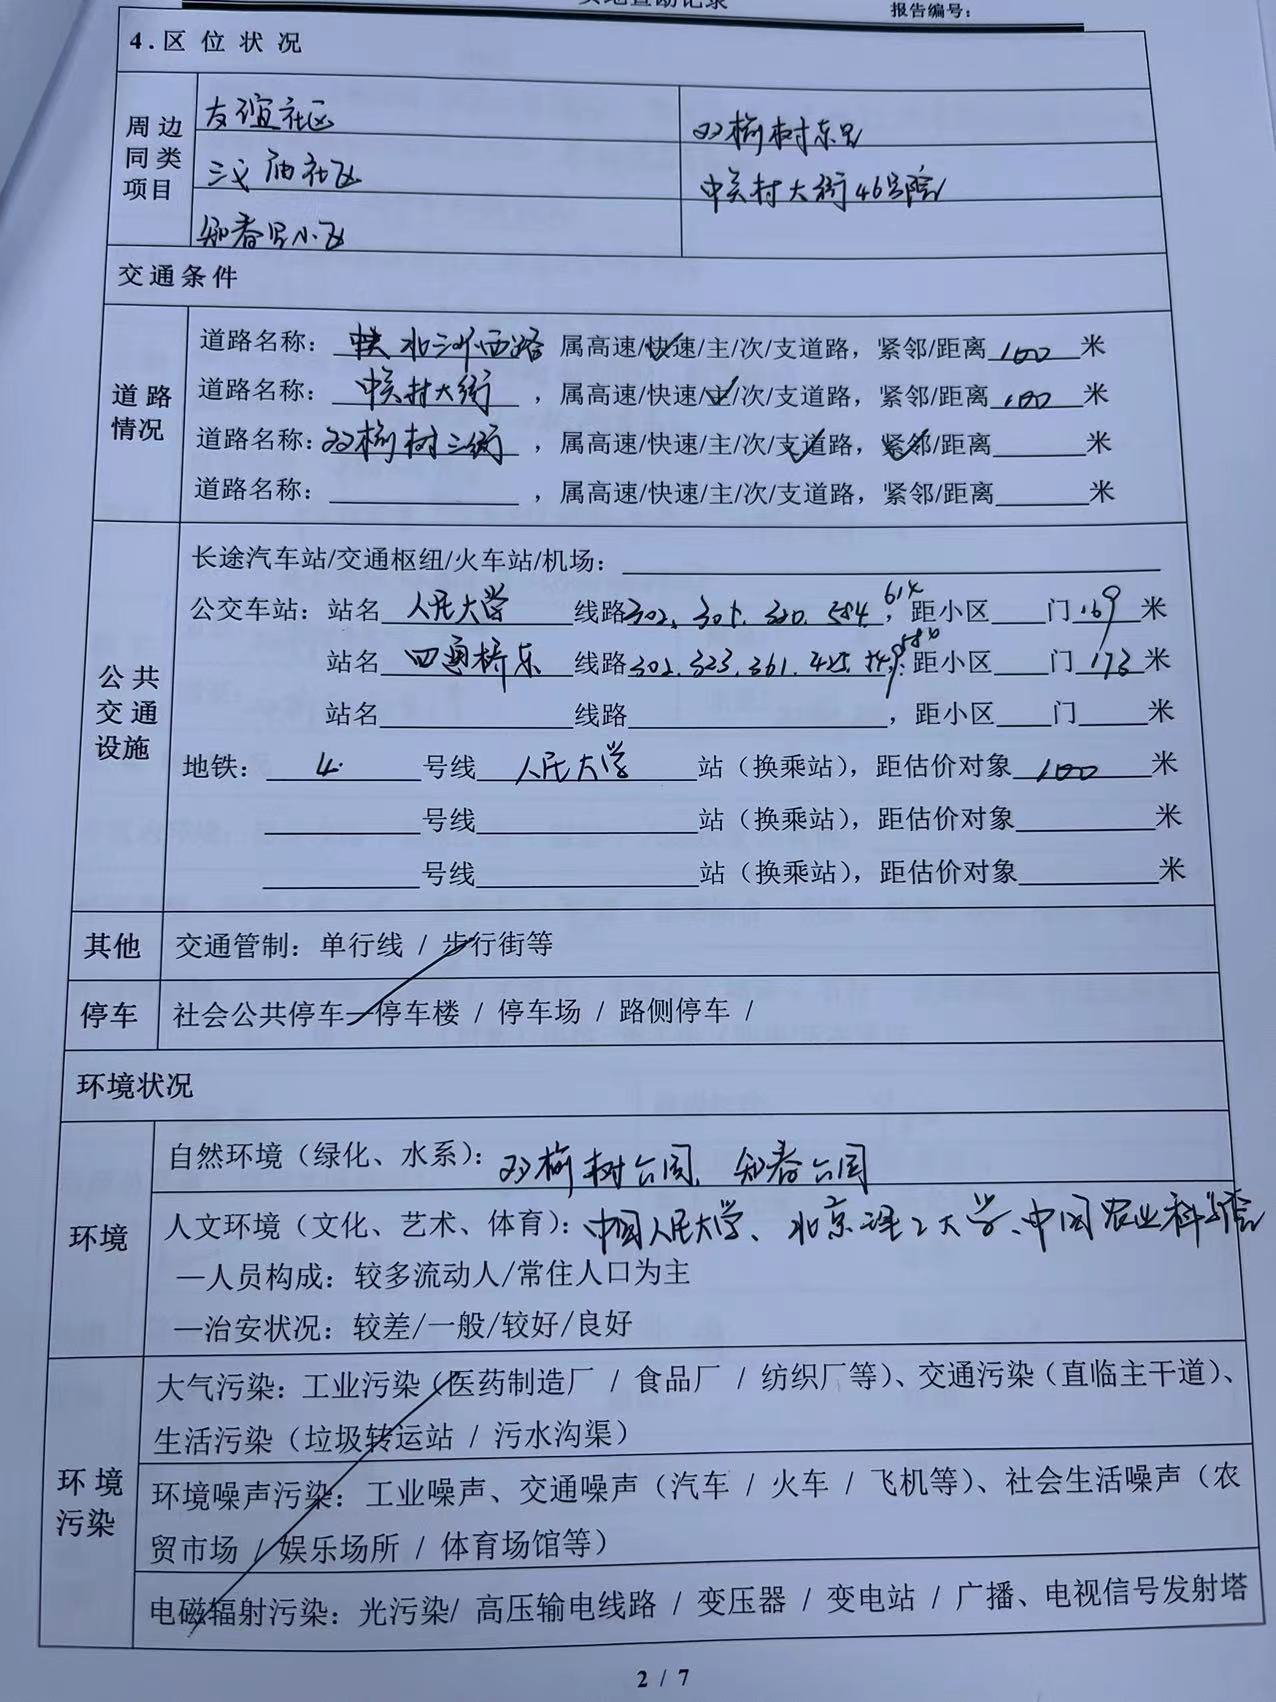 实地查勘记录
报告编号：
4.区位状况
周边同类项目
友谊社区
双榆树东里
三义庙社区
中关村大街46号院
知春里小区
交通条件
道路情况
道路名称： 西路 属高速/快速/主/次/支道路，紧邻/距离100米
道路名称：中关村大街，属高速/快速/主/次/支道路，紧邻/距离100米
道路名称：双榆树二街，属高速/快速/主/次/支道路，紧邻/距离 米
道路名称： ，属高速/快速/主/次/支道路，紧邻/距离 米
公共交通设施
长途汽车站/交通枢纽/火车站/机场：
公交车站：站名 人民大学 线路302、301、320、584、614，距小区 门169米
站名 四通桥东 线路302.323.361. 586，距小区 门173米
站名 线路 ，距小区 门 米
地铁：4 号线 人民大学 站（换乘站），距估价对象100米
号线 站（换乘站），距估价对象 米
号线 站（换乘站），距估价对象 米
其他 交通管制：单行线 / 步行街等
停车 社会公共停车 停车楼 / 停车场 / 路侧停车 /
环境状况
环境
自然环境（绿化、水系）：双榆树公园、知春公园
人文环境（文化、艺术、体育）：中国人民大学、北京理工大学、中国农业科学院
—人员构成：较多流动人/常住人口为主
—治安状况：较差/一般/较好/良好
环境污染
大气污染：工业污染（医药制造厂 / 食品厂 / 纺织厂等）、交通污染（直临主干道）、
生活污染（垃圾转运站 / 污水沟渠）
环境噪声污染：工业噪声、交通噪声（汽车 / 火车 / 飞机等）、社会生活噪声（农
贸市场 / 娱乐场所 / 体育场馆等）
电磁辐射污染：光污染/ 高压输电线路 / 变压器 / 变电站 / 广播、电视信号发射塔
2 / 7